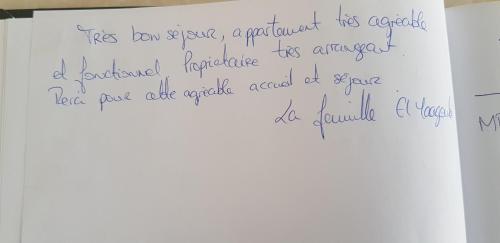 Très bon séjour, appartement très agréable
et fonctionnel Propriétaire très arrangeant.
Merci pour cette agréable accueil et séjour
La famille El